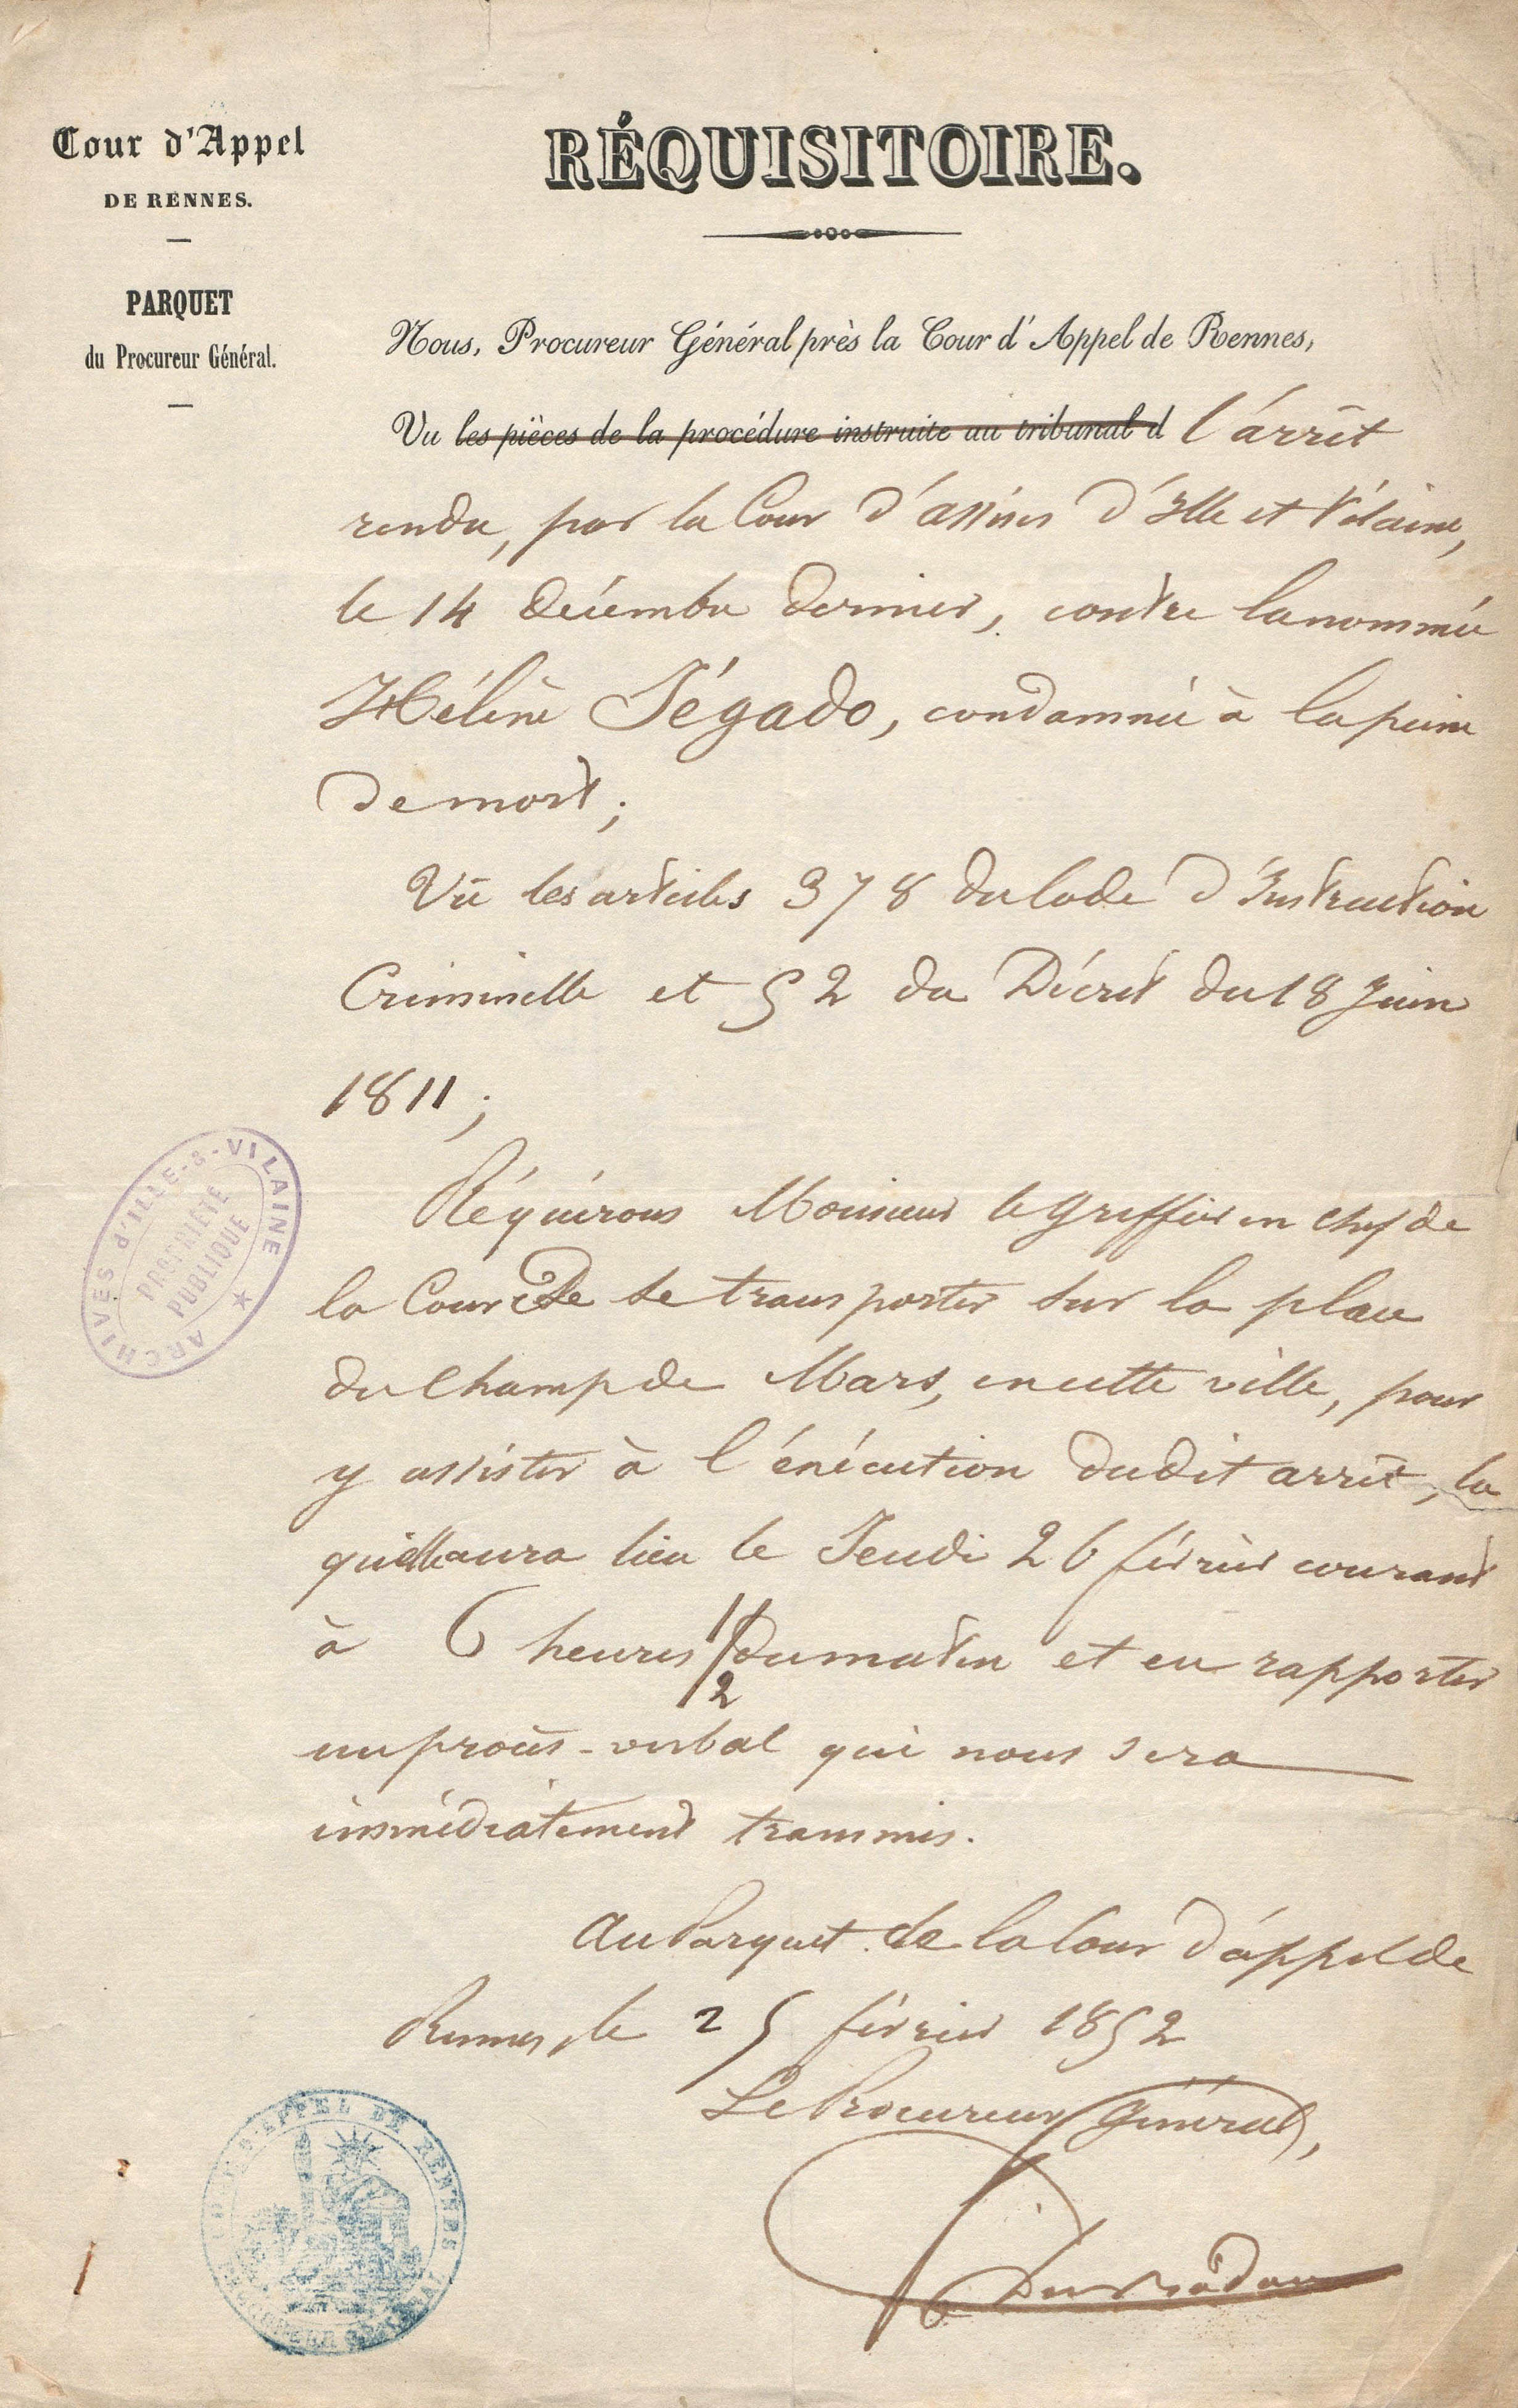 Cour d'Appel
DE RENNES.
PARQUET
du Procureur Général.
RÉQUISITOIRE.
Nous, Procureur Général près la Cour d'Appel de Rennes,
Vu les pièces de la procédure instruite au tribunal d l'arrêt
rendu, par la Cour d'assises d'Ille et Vilaine,
le 14 décembre dernier, contre la nommée
Hélène Jégado, condamnée à la peine
de mort;
Vu les articles 378 du Code d'Instruction
Criminelle et 52 du Décret du 18 Juin
1811;
Réquérons Monsieur le Greffier en chef de
la Cour de se transporter sur la place
du Champ de Mars, en cette ville, pour
y assister à l'exécution dudit arrêt, la
quelle aura lieu le Jeudi 26 février courant
à 6 heures 1/2 du matin et en rapporter
un procès-verbal qui nous sera
immédiatement transmis.
Au Parquet de la Cour d'appel de
Rennes, le 25 février 1852
Le Procureur Général,
ARCHIVES d'ILLE-&-VILAINE ★
PROPRIÉTÉ
PUBLIQUE
COUR D'APPEL DE RENNES